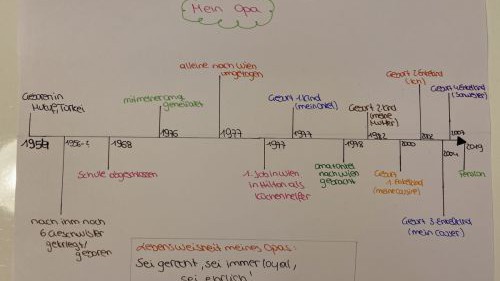 Mein Opa
Geboren in
Türkei
1956-?
nach ihm noch
6 Geschwister
geboren
1968
Schule abgeschlossen
1976
alleine nach Wien
umgezogen
1977
1977
1. Job in Wien
in Hilton als
Küchenhelfer
Geburt 1.Kind
(mein Onkel)
1977
1978
nach Wien
gebracht
Geburt 2.Kind
(meine
Mutter)
1982
2000
Geburt
1. Enkelkind
(meine Cousine)
Geburt 2.Enkelkind
(Ich)
2002
2004
Geburt 3.Enkelkind
(mein Cousin)
Geburt 4.Enkelkind
(Schwester)
2007
2019
Pension
Lebensweisheit meines Opas:
Sei gerecht, sei immer loyal,
sei ehrlich!